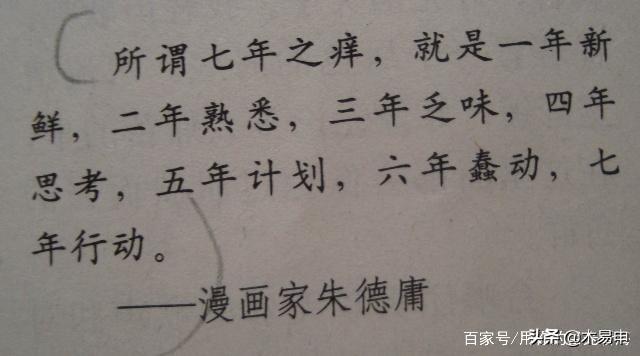 所谓七年之痒，就是一年新
鲜，二年熟悉，三年乏味，四年
思考，五年计划，六年蠢动，七
年行动。
——漫画家朱德庸
头条@木易电